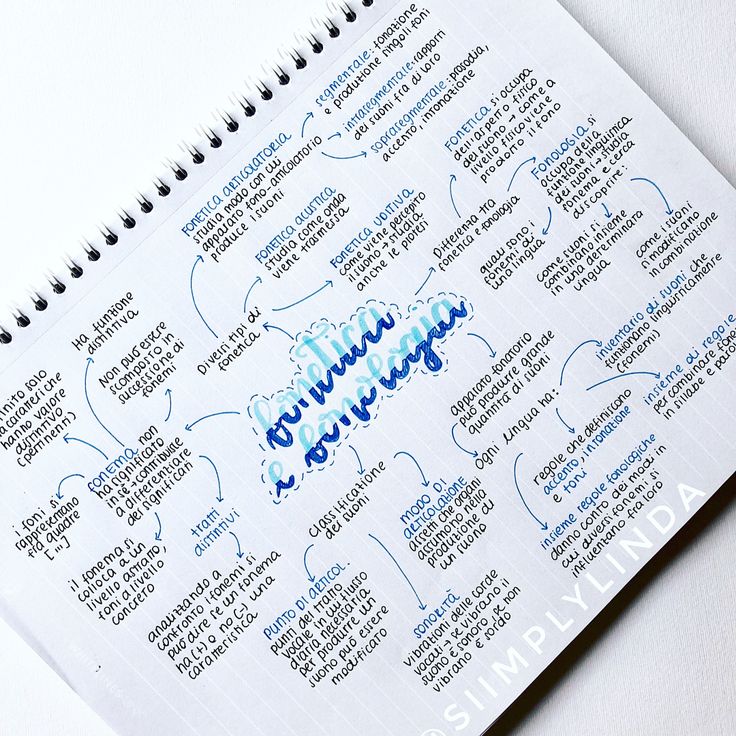 Fonetica
e fonologia
Diversi tipi di
fonetica
FONETICA ARTICOLATORIA
studia modo con cui
apparato fono-articolatorio
produce i suoni
segmentale: fonazione
e produzione singoli foni
intrasegmentale: rapporti
dei suoni fra di loro
soprasegmentale: prosodia,
accento, intonazione
FONETICA ACUSTICA
studia come onda
viene trasmessa
FONETICA UDITIVA
come viene percepito
il suono → studia
anche le protesi
Differenza tra
fonetica e fonologia
FONETICA si occupa
dell'aspetto fisico
del suono → come a
livello fisico viene
prodotto il fono
FONOLOGIA si
occupa della
funzione linguistica
dei suoni → studia
fonema e cerca
di scoprire:
quali sono i
fonemi di
una lingua
come suoni si
combinano insieme
in una determinata
lingua
come i suoni
si modificano
in combinazione
apparato fonatorio
può produrre grande
quantità di suoni
Ogni lingua ha:
inventario di suoni che
funzionano linguisticamente
(fonemi)
insieme di regole
per combinare
in sillabe e
regole che definiscono
accento, intonazione
e toni
insieme regole fonologiche
danno conto dei modi in
cui diversi fonemi si
influenzano fra loro
Classificazione
dei suoni
MODO DI
ARTICOLAZIONE
assetti che organi
assumono nella
produzione di
un suono
SONORITÀ
vibrazioni delle corde
vocali → se vibrano il
suono è sonoro, se non
vibrano è sordo
PUNTO DI ARTICOL.
punti del tratto
vocale in cui flusso
d'aria necessaria
per produrre un
suono può essere
modificato
FONEMA non
ha significato
in sé → contribuisce
a differenziare
dei significati
Non può essere
scomposto in
successione di
fonemi
Ha funzione
distintiva
solo
caratteri che
hanno valore
distintivo
(pertinenti)
i foni si
rappresentano
fra quadre
[...]
il fonema si
colloca a un
livello astratto,
foni a livello
concreto
tratti
distintivi
analizzando a
confronto i fonemi si
può dire se un fonema
ha (+) o no (-) una
caratteristica
@SIIMPLYLINDA